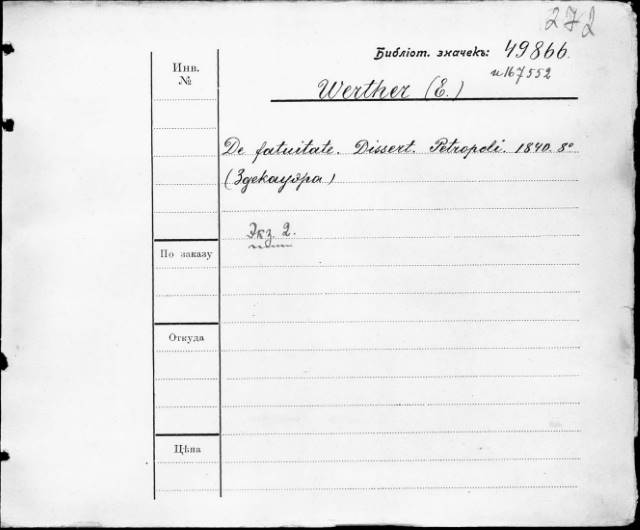 272
Библіот. значекъ: 49866.
и 167552
Инв.
№
Werther (E.)
De fatuitate. Dissert. Petropoli. 1840. 8°
(Здекауэра)
Экз. 2.
По заказу
Откуда
Цѣна